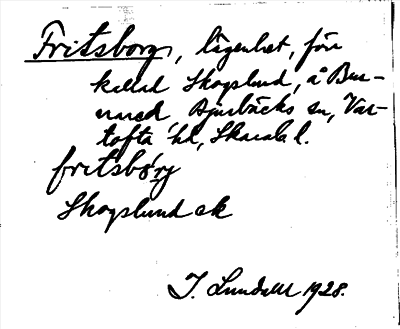 Fritsborg, lägenhet, förr
kallad Skogslund, å Bur-
, Bjurbäcks sn, Var-
tofta hd, Skarab. l.
fritsbórg
Skogslund ek
J. Lundahl 1928.